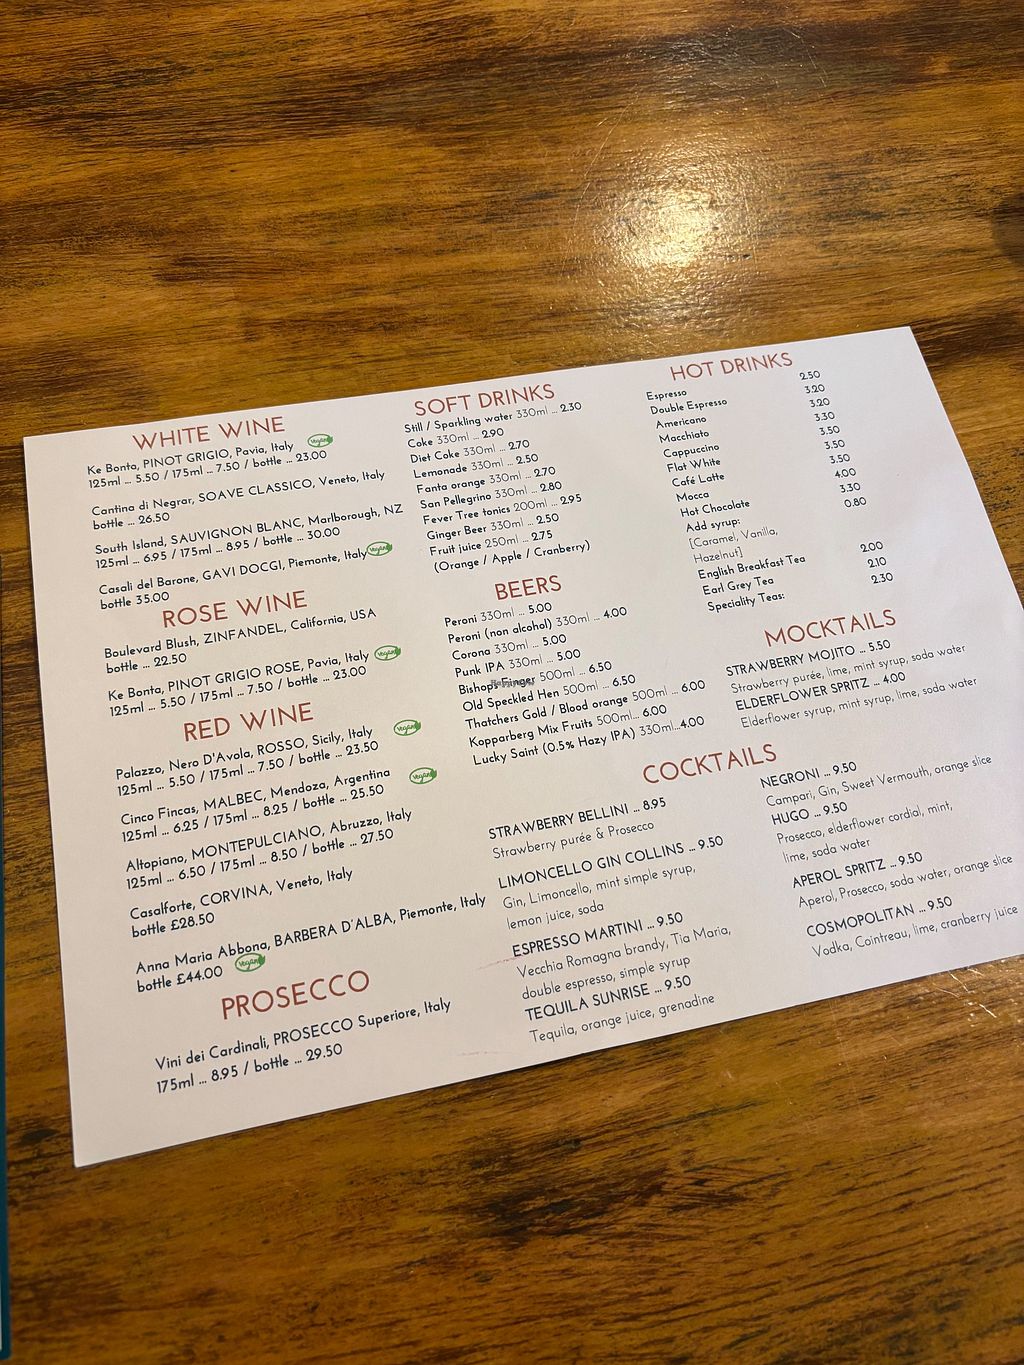 WHITE WINE
Ke Bonta, PINOT GRIGIO, Pavia, Italy vegan
125ml ... 5.50 / 175ml ... 7.50 / bottle ... 23.00
Cantina di Negrar, SOAVE CLASSICO, Veneto, Italy
bottle ... 26.50
South Island, SAUVIGNON BLANC, Marlborough, NZ
125ml ... 6.95 / 175ml ... 8.95 / bottle ... 30.00
Casali del Barone, GAVI DOCGI, Piemonte, Italy vegan
bottle 35.00
ROSE WINE
Boulevard Blush, ZINFANDEL, California, USA
bottle ... 22.50
Ke Bonta, PINOT GRIGIO ROSE, Pavia, Italy vegan
125ml ... 5.50 / 175ml ... 7.50 / bottle ... 23.00
RED WINE
Palazzo, Nero D'Avola, ROSSO, Sicily, Italy vegan
125ml ... 5.50 / 175ml ... 7.50 / bottle ... 23.50
Cinco Fincas, MALBEC, Mendoza, Argentina vegan
125ml ... 6.25 / 175ml ... 8.25 / bottle ... 25.50
Altopiano, MONTEPULCIANO, Abruzzo, Italy
125ml ... 6.50 / 175ml ... 8.50 / bottle ... 27.50
Casalforte, CORVINA, Veneto, Italy
bottle £28.50
Anna Maria Abbona, BARBERA D'ALBA, Piemonte, Italy
bottle £44.00 vegan
PROSECCO
Vini dei Cardinali, PROSECCO Superiore, Italy
175ml ... 8.95 / bottle ... 29.50
SOFT DRINKS
Still / Sparkling water 330ml ... 2.30
Coke 330ml ... 2.90
Diet Coke 330ml ... 2.70
Lemonade 330ml ... 2.50
Fanta orange 330ml ... 2.70
San Pellegrino 330ml ... 2.80
Fever Tree tonics 200ml ... 2.95
Ginger Beer 330ml ... 2.50
Fruit juice 250ml ... 2.75
(Orange / Apple / Cranberry)
BEERS
Peroni 330ml ... 5.00
Peroni (non alcohol) 330ml ... 4.00
Corona 330ml ... 5.00
Punk IPA 330ml ... 5.00
Bishops Finger 500ml ... 6.50
Old Speckled Hen 500ml ... 6.50
Thatchers Gold / Blood orange 500ml ... 6.00
Kopparberg Mix Fruits 500ml... 6.00
Lucky Saint (0.5% Hazy IPA) 330ml...4.00
HOT DRINKS
Espresso 2.50
Double Espresso 3.20
Americano 3.20
Macchiato 3.30
Cappuccino 3.50
Flat White 3.50
Café Latte 3.50
Mocca 4.00
Hot Chocolate 3.30
Add syrup: 0.80
[Caramel, Vanilla,
Hazelnut]
English Breakfast Tea 2.00
Earl Grey Tea 2.10
Speciality Teas: 2.30
MOCKTAILS
STRAWBERRY MOJITO ... 5.50
Strawberry purée, lime, mint syrup, soda water
ELDERFLOWER SPRITZ ... 4.00
Elderflower syrup, mint syrup, lime, soda water
COCKTAILS
STRAWBERRY BELLINI ... 8.95
Strawberry purée & Prosecco
LIMONCELLO GIN COLLINS ... 9.50
Gin, Limoncello, mint simple syrup,
lemon juice, soda
ESPRESSO MARTINI ... 9.50
Vecchia Romagna brandy, Tia Maria,
double espresso, simple syrup
TEQUILA SUNRISE ... 9.50
Tequila, orange juice, grenadine
NEGRONI ... 9.50
Campari, Gin, Sweet Vermouth, orange slice
HUGO ... 9.50
Prosecco, elderflower cordial, mint,
lime, soda water
APEROL SPRITZ ... 9.50
Aperol, Prosecco, soda water, orange slice
COSMOPOLITAN ... 9.50
Vodka, Cointreau, lime, cranberry juice